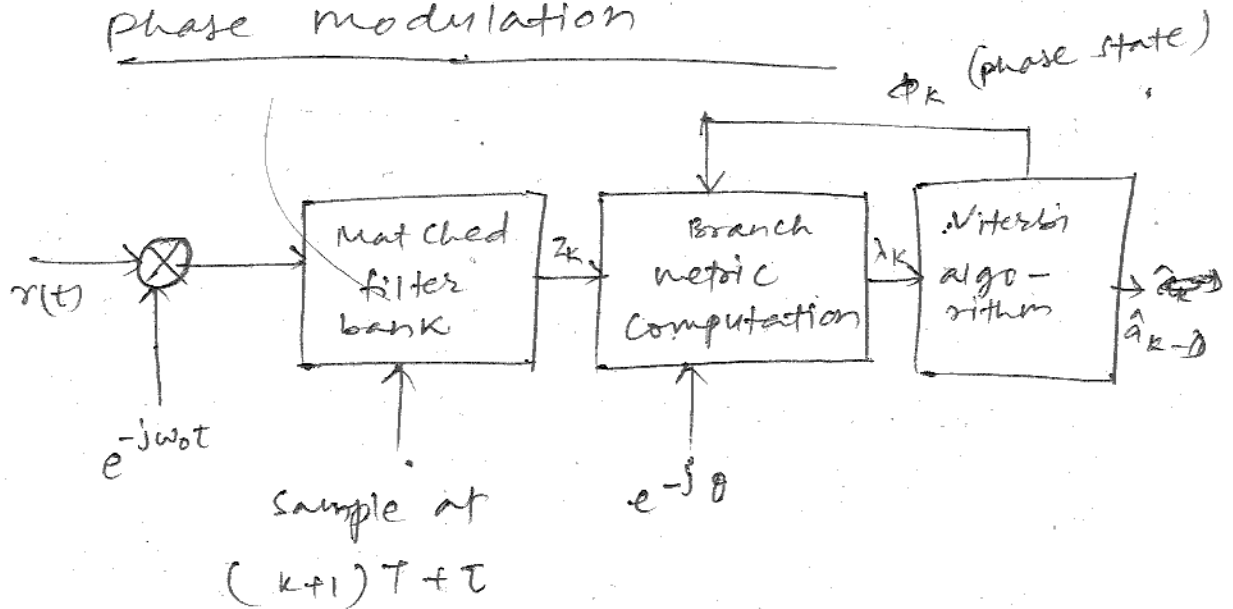 phase modulation
ϕ_K (phase state)
r(t)
e^{-jω₀t}
Matched
filter
bank
z_K
Branch
metric
computation
λ_K
Viterbi
algo-
rithm
â_{K-D}
sample at
(k+1)T+τ
e^{-jθ}